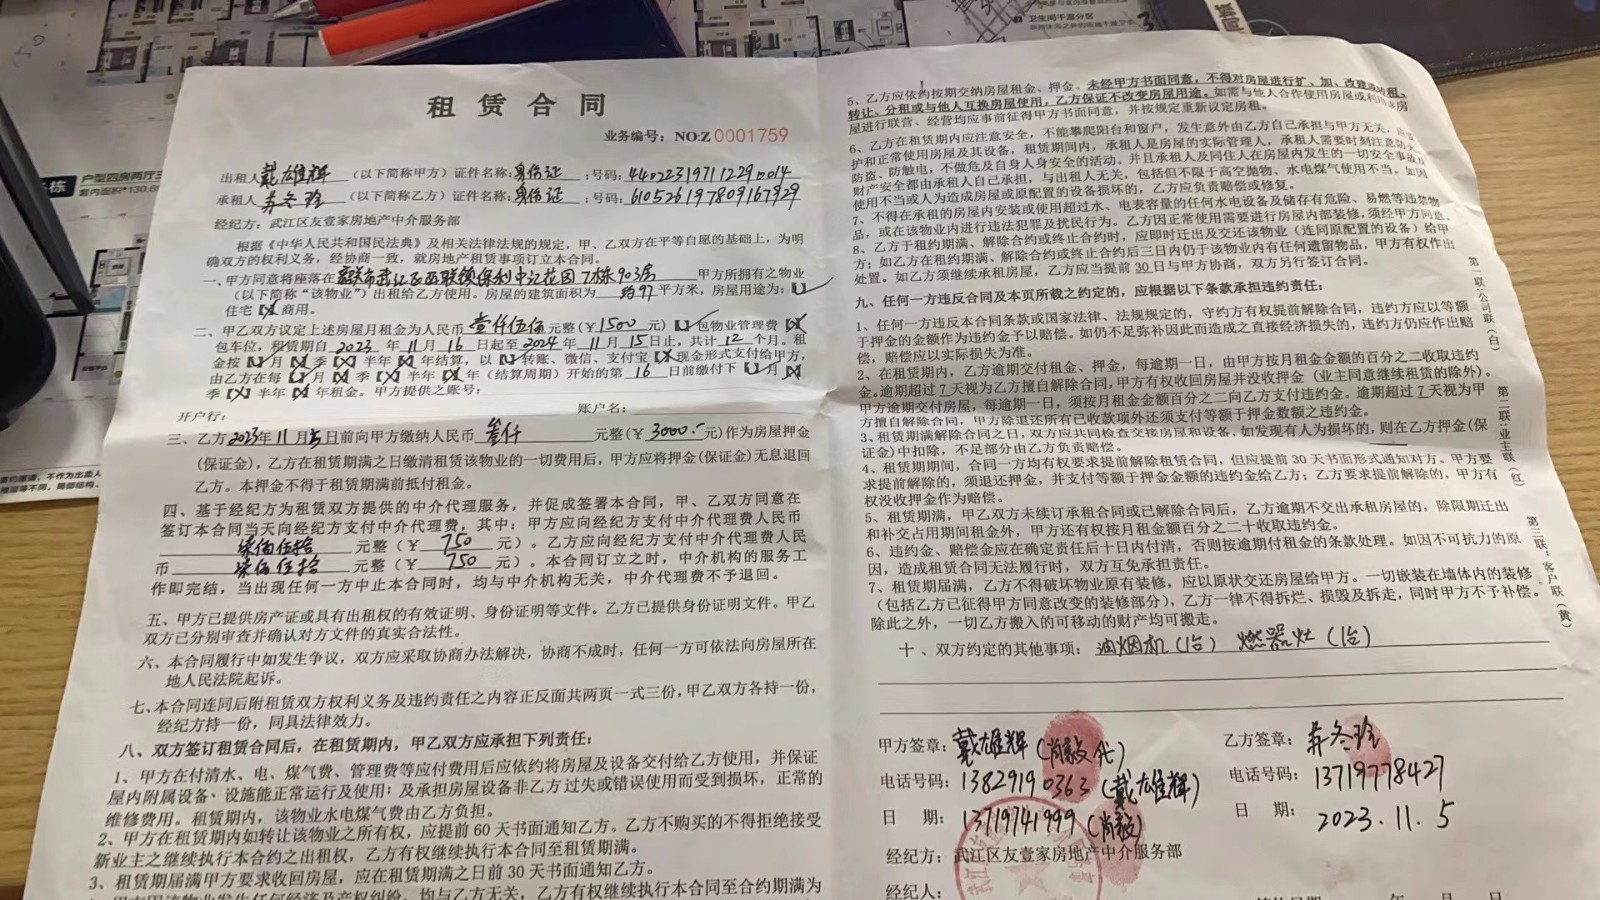 租赁合同
业务编号：NO:Z 0001759
出租人戴雄辉（以下简称甲方）证件名称：身份证；号码：440223197112290014
承租人（以下简称乙方）证件名称：身份证；号码：610526197809167929
经纪方：武江区友壹家房地产中介服务部
根据《中华人民共和国民法典》及相关法律法规的规定，甲、乙双方在平等自愿的基础上，为明
确双方的权利义务，经协商一致，就房地产租赁事项订立本合同。
一、甲方同意将座落在韶关市武江区西联镇保利中汇花园7栋903房甲方所拥有之物业
（以下简称“该物业”）出租给乙方使用。房屋的建筑面积为 约97 平方米，房屋用途为：【】
住宅【X】商用。
二、甲乙双方议定上述房屋月租金为人民币壹仟伍佰元整（¥1500元）【】包物业管理费【X】
包车位，租赁期自2023年11月16日起至2024年11月15日止，共计12个月。租
金按【】月【X】季【X】半年【X】年结算，以【】转账、微信、支付宝【X】现金形式支付给甲方，
由乙方在每【】月【X】季【X】半年【X】年（结算周期）开始的第16日前缴付下【】月【X】
季【X】半年【X】年租金。甲方提供之账号：
开户行： 账户名：
三、乙方2023年11月5日前向甲方缴纳人民币 叁仟 元整（¥3000.-元）作为房屋押金
（保证金），乙方在租赁期满之日缴清租赁该物业的一切费用后，甲方应将押金（保证金）无息退回
乙方。本押金不得于租赁期满前抵付租金。
四、基于经纪方为租赁双方提供的中介代理服务，并促成签署本合同，甲、乙双方同意在
签订本合同当天向经纪方支付中介代理费，其中：甲方应向经纪方支付中介代理费人民币
柒佰伍拾 元整（¥ 750 元）。乙方应向经纪方支付中介代理费人民
币 柒佰伍拾 元整（¥ 750 元）。本合同订立之时，中介机构的服务工
作即完结，当出现任何一方中止本合同时，均与中介机构无关，中介代理费不予退回。
五、甲方已提供房产证或具有出租权的有效证明、身份证明等文件。乙方已提供身份证明文件。甲乙
双方已分别审查并确认对方文件的真实合法性。
六、本合同履行中如发生争议，双方应采取协商办法解决，协商不成时，任何一方可依法向房屋所在
地人民法院起诉。
七、本合同连同后附租赁双方权利义务及违约责任之内容正反面共两页一式三份，甲乙双方各持一份，
经纪方持一份，同具法律效力。
八、双方签订租赁合同后，在租赁期内，甲乙双方应承担下列责任：
1、甲方在付清水、电、煤气费、管理费等应付费用后应依约将房屋及设备交付给乙方使用，并保证
屋内附属设备、设施能正常运行及使用：及承担房屋设备非乙方过失或错误使用而受到损坏，正常的
维修费用。租赁期内，该物业水电煤气费由乙方负担。
2、甲方在租赁期内如转让该物业之所有权，应提前60天书面通知乙方。乙方不购买的不得拒绝接受
新业主之继续执行本合约之出租权，乙方有权继续执行本合同至租赁期满。
3、租赁期届满甲方要求收回房屋，应在租赁期满之日前30天书面通知乙方。
均与乙方无关，乙方有权继续执行本合同至合约期满为
5、乙方应依约按期交纳房屋租金、押金。未经甲方书面同意，不得对房屋进行扩、加、改建或转租、
转让、分租或与他人互换房屋使用，乙方保证不改变房屋用途。如需与他人合作使用房屋或利用该房
屋进行联营、经营均应事前征得甲方书面同意，并按规定重新议定房租。
6、乙方在租赁期内应注意安全，不能攀爬阳台和窗户，发生意外由乙方自己承担与甲方无关，
护和正常使用房屋及其设备，租赁期间内，承租人是房屋的实际管理人，承租人需要时刻注意防火
防盗、防触电，不做危及自身人身安全的活动。并且承租人及同住人在房屋内发生的一切安全事故及
财产安全都由承租人自己承担，与出租人无关，包括但不限于高空抛物、水电煤气使用不当。如因
使用不当或人为造成房屋或原配置的设备损坏的，乙方应负责赔偿或修复。
7、不得在承租的房屋内安装或使用超过水、电表容量的任何水电设备及储存有危险、易燃等违禁物
品，或在该物业内进行违法犯罪及扰民行为。乙方因正常使用需要进行房屋内部装修，须经甲方同意。
8、乙方于租约期满、解除合约或终止合约时，应即时迁出及交还该物业（连同原配置的设备）给甲
方；如乙方在租约期满、解除合约或终止合约后三日内仍于该物业内有任何遗留物品，甲方有权作出
处置。如乙方须继续承租房屋，乙方应当提前30日与甲方协商，双方另行签订合同。
九、任何一方违反合同及本页所载之约定的，应根据以下条款承担违约责任：
1、任何一方违反本合同条款或国家法律、法规规定的，守约方有权提前解除合同，违约方应以等额
于押金的金额作为违约金予以赔偿。如仍不足弥补因此而造成之直接经济损失的，违约方仍应作出赔
偿，赔偿应以实际损失为准。
2、在租赁期内，乙方逾期交付租金、押金，每逾期一日，由甲方按月租金金额的百分之二收取违约
金。逾期超过7天视为乙方擅自解除合同，甲方有权收回房屋并没收押金（业主同意继续租赁的除外）。
甲方逾期交付房屋，每逾期一日，须按月租金金额百分之二向乙方支付违约金。逾期超过7天视为甲
方擅自解除合同，甲方除退还所有已收款项外还须支付等额于押金数额之违约金。
3、租赁期满解除合同之日，双方应共同检查交接房屋和设备，如发现有人为损坏的，则在乙方押金（保
证金）中扣除，不足部分由乙方负责赔偿。
4、租赁期期间，合同一方均有权要求提前解除租赁合同，但应提前30天书面形式通知对方。甲方要
求提前解除的，须退还押金，并支付等额于押金金额的违约金给乙方；乙方要求提前解除的，甲方有
权没收押金作为赔偿。
5、租赁期满，甲乙双方未续订承租合同或已解除合同后，乙方逾期不交出承租房屋的，除限期迁出
和补交占用期间租金外，甲方还有权按月租金额百分之二十收取违约金。
6、违约金、赔偿金应在确定责任后十日内付清，否则按逾期付租金的条款处理。如因不可抗力的原
因，造成租赁合同无法履行时，双方互免承担责任。
7、租赁期届满，乙方不得破坏物业原有装修，应以原状交还房屋给甲方。一切嵌装在墙体内的装修
（包括乙方已征得甲方同意改变的装修部分），乙方一律不得拆烂、损毁及拆走，同时甲方不予补偿。
除此之外，一切乙方搬入的可移动的财产均可搬走。
十、双方约定的其他事项：油烟机（1台） 燃器灶（1台）
甲方签章：戴雄辉（肖毅代）
电话号码：13829190363（戴雄辉）
日 期：13719741999（肖毅）
经纪方：武江区友壹家房地产中介服务部
经纪人：
乙方签章：
电话号码：13719778427
日 期：2023.11.5
年 月 日
第一联：公司联（白）
第二联：业主联（红）
第三联：客户联（黄）
户型四房两厅三
卫生间干湿分区